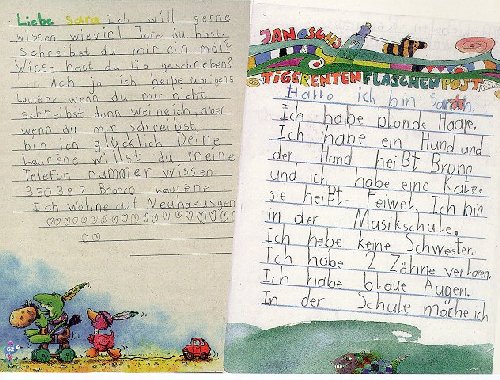 Liebe Sara ich will gerne
wissen wieviel Jare du hast.
du mir ein mal?
Wieso hast du nie geschrieben?
Ach ja ich heise
wenn du mir nicht
schreibst dann weine ich aber
wenn du mir schreibst
bin ich glücklich Deine
Laurene willst du meine
Telefon nummer wissen
Ich wohne auf
JANOSCHS
TIGERENTENFLASCHENPOST
Hallo ich bin Sarah.
Ich habe blonde Haare.
Ich habe ein Hund und
der Hund heißt Bruno
und ich habe eine Katze
se heißt Feiwel. Ich bin
in der Musikschule.
Ich habe keine Schwester.
Ich habe 2 Zähne verloren.
Ich habe blaue Augen.
In der Schule möche ich